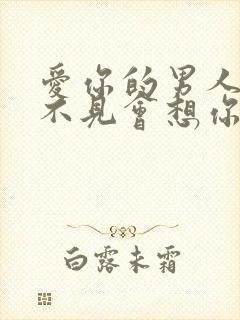 愛你的男人
不見會想你
白露未霜